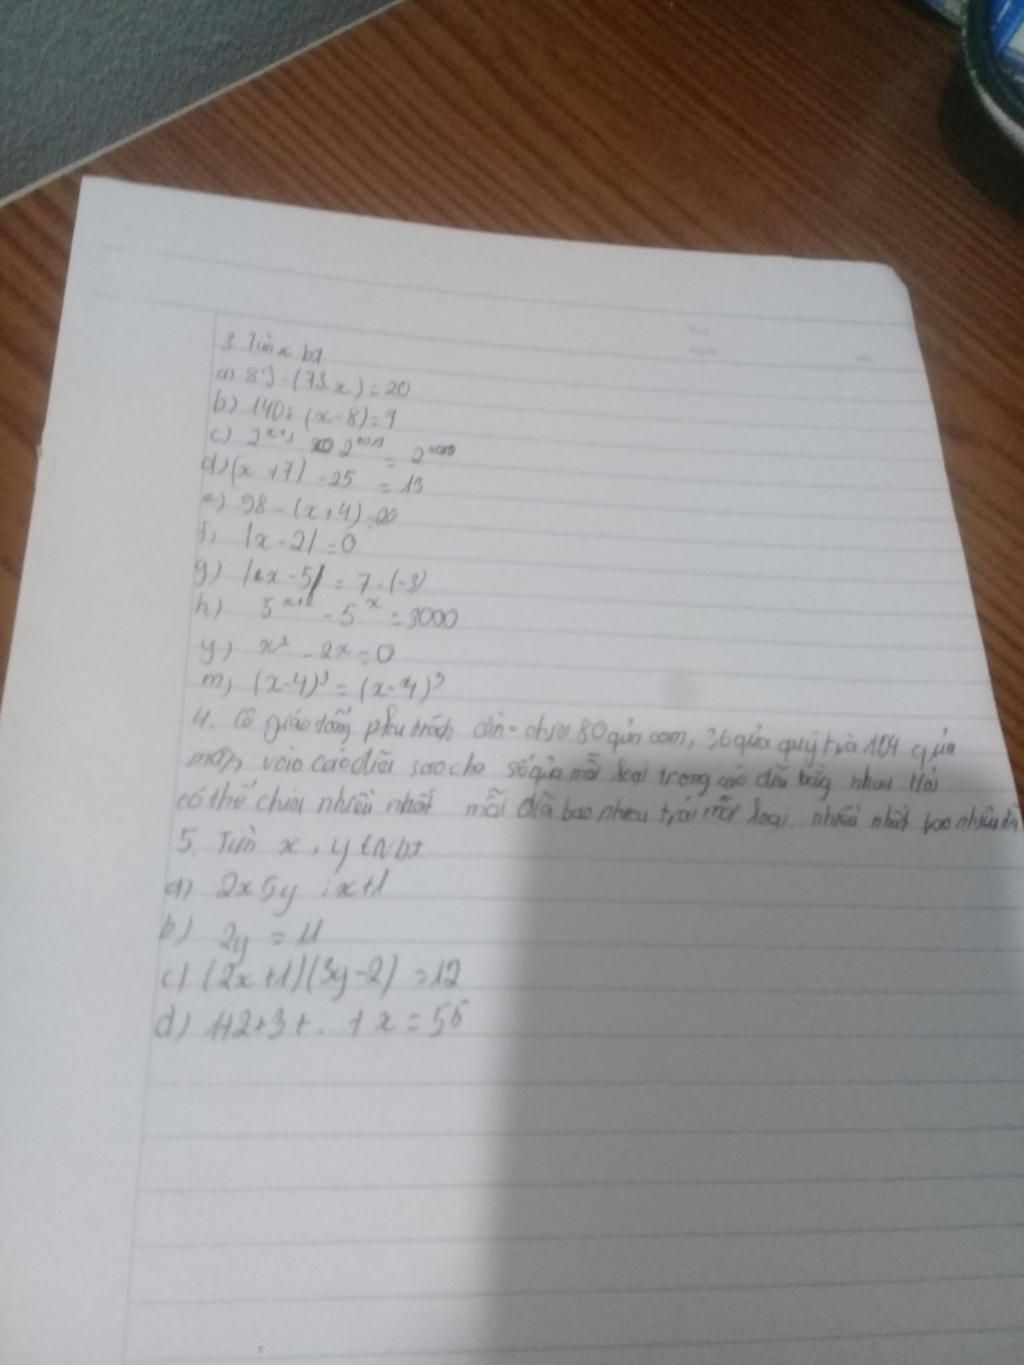 3. Tìm x bt
a) 89 - (73 - x) = 20
b) 140 : (x - 8) = 7
c) 2
d) (x + 7) - 25 = 13
e) 98 - (x + 4) = 20
f) |x - 2| = 0
g) |x - 5| = 7 - (-3)
h) 5ˣ⁺² - 5ˣ = 3000
y) x² - 2x = 0
m) (x - 4)³ = (x - 4)
4. Cô giáo phụ trách cần chia 80 quả cam, 36 quả quýt và 104 quả
mận vào các đĩa sao cho số quả mỗi loại trong các đĩa bằng nhau Hỏi
có thể chia nhiều nhất mỗi đĩa bao nhiêu trái mỗi loại. nhiều nhất bao nhiêu đĩa
5. Tìm x, y ∈ N bt
a) 2x5y : x+1
b) 2y = 11
c) (2x + 1)(3y - 2) = 12
d) 1+2+3+ . . + x = 55